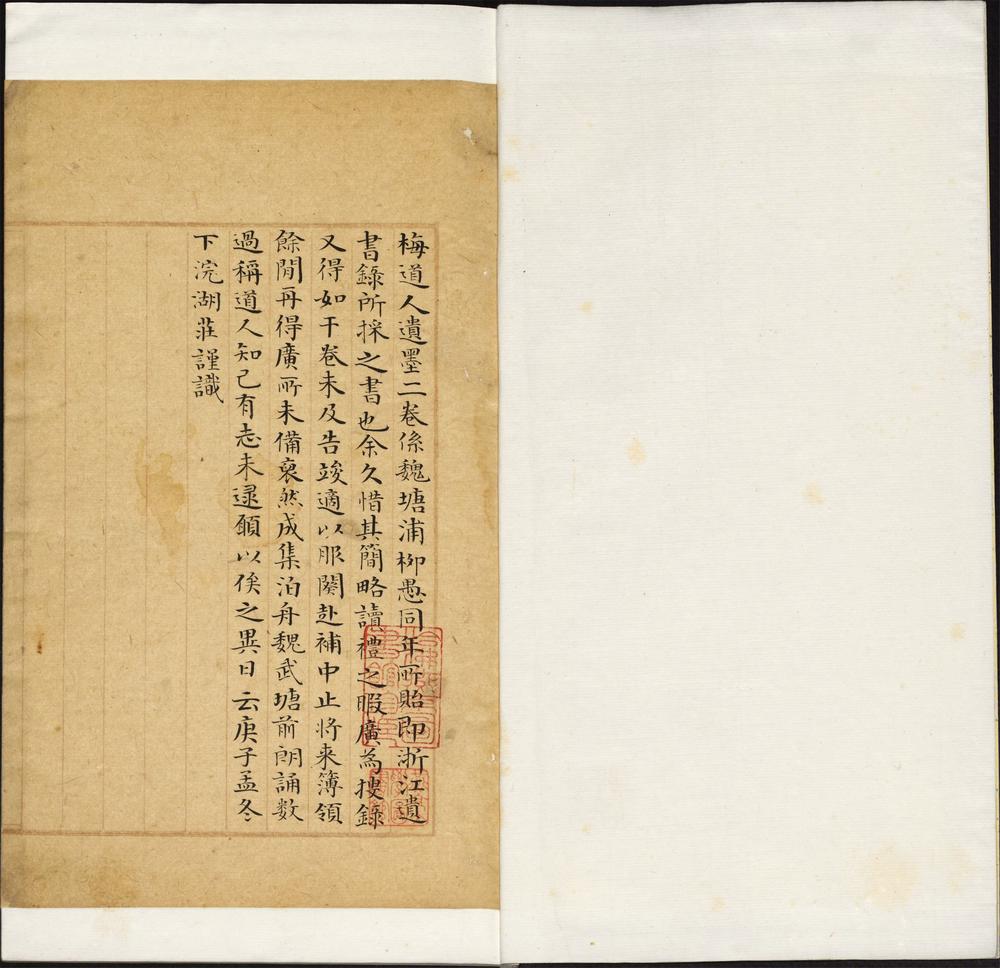 梅道人遺墨二卷係魏塘浦柳愚同年所貽即浙江遺
書錄所採之書也余久惜其簡略讀禮之暇廣為搜錄
又得如干卷未及告竣適以服闋赴補中止將来簿領
餘閒再得廣所未備裒然成集泊舟魏武塘前朗誦数
過稱道人知己有志未逮願以俟之異日云庚子孟冬
下浣湖莊謹識